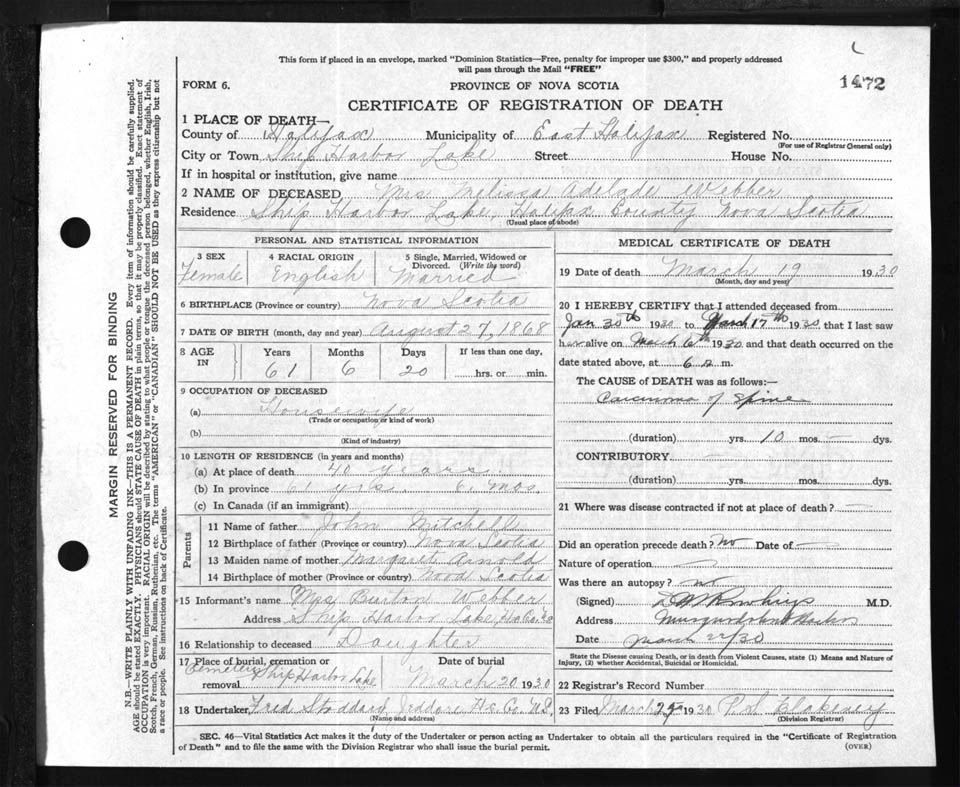 This form if placed in an envelope, marked "Dominion Statistics—Free, penalty for improper use $300," and properly addressed
will pass through the Mail "FREE"
FORM 6.
PROVINCE OF NOVA SCOTIA
1472
CERTIFICATE OF REGISTRATION OF DEATH
1 PLACE OF DEATH—
County of Halifax Municipality of East Halifax Registered No.
(For use of Registrar General only)
City or Town Ship Harbor Lake Street House No.
If in hospital or institution, give name
2 NAME OF DECEASED Mrs Melissa Adelade Webber
Residence Ship Harbor Lake, Halifax County Nova Scotia
(Usual place of abode)
PERSONAL AND STATISTICAL INFORMATION
3 SEX Female
4 RACIAL ORIGIN English
5 Single, Married, Widowed or Divorced. (Write the word) Married
6 BIRTHPLACE (Province or country) Nova Scotia
7 DATE OF BIRTH (month, day and year) August 27, 1868
8 AGE IN Years 61 Months 6 Days 20 If less than one day, hrs. or min.
9 OCCUPATION OF DECEASED
(a) Housewife
(Trade or occupation or kind of work)
(b)
(Kind of industry)
10 LENGTH OF RESIDENCE (in years and months)
(a) At place of death 40 years
(b) In province 61 yrs. 6. mos.
(c) In Canada (if an immigrant)
Parents
11 Name of father John Mitchell
12 Birthplace of father (Province or country) Nova Scotia
13 Maiden name of mother Margaret Arnold
14 Birthplace of mother (Province or country) Nova Scotia
15 Informant's name Mrs Burton Webber
Address Ship Harbor Lake, Hx Co. N.S
16 Relationship to deceased Daughter
17 Place of burial, cremation or removal Cemetery Ship Harbor Lake
Date of burial March 20 1930
18 Undertaker, Fred Stoddard, Jeddore Hx. Co N.S,
(Name and address)
MEDICAL CERTIFICATE OF DEATH
19 Date of death March 19 1930
(Month, day and year)
20 I HEREBY CERTIFY that I attended deceased from
Jan 30th 1930 to March 17th 1930 that I last saw
her alive on March 6th 1930 and that death occurred on the
date stated above, at 6 a m.
The CAUSE of DEATH was as follows:—
Carcinoma of Spine
(duration) yrs. 10 mos. — dys.
CONTRIBUTORY —
(duration) yrs. mos. dys.
21 Where was disease contracted if not at place of death? —
Did an operation precede death? no Date of —
Nature of operation —
Was there an autopsy? no
(Signed) M.D.
Address
Date March 22/30
State the Disease causing Death, or in death from Violent Causes, state (1) Means and Nature of
Injury, (2) whether Accidental, Suicidal or Homicidal.
22 Registrar's Record Number
23 Filed March 1930 Blakeney
(Division Registrar)
SEC. 46—Vital Statistics Act makes it the duty of the Undertaker or person acting as Undertaker to obtain all the particulars required in the "Certificate of Registration
of Death" and to file the same with the Division Registrar who shall issue the burial permit.
(OVER)
MARGIN RESERVED FOR BINDING
N.B.—WRITE PLAINLY WITH UNFADING INK—THIS IS A PERMANENT RECORD. Every item of information should be carefully supplied.
AGE should be stated EXACTLY. PHYSICIANS should STATE CAUSE OF DEATH in plain terms, so that it may be properly classified. Exact statement of
OCCUPATION is very important. RACIAL ORIGIN will be described by stating to what people or tongue the deceased person belonged, whether English, Irish,
Scotch, French, German, Russian, Ruthenian, etc. The terms "AMERICAN" or "CANADIAN" SHOULD NOT BE USED as they express citizenship but not
a race or people. See instructions on back of Certificate.